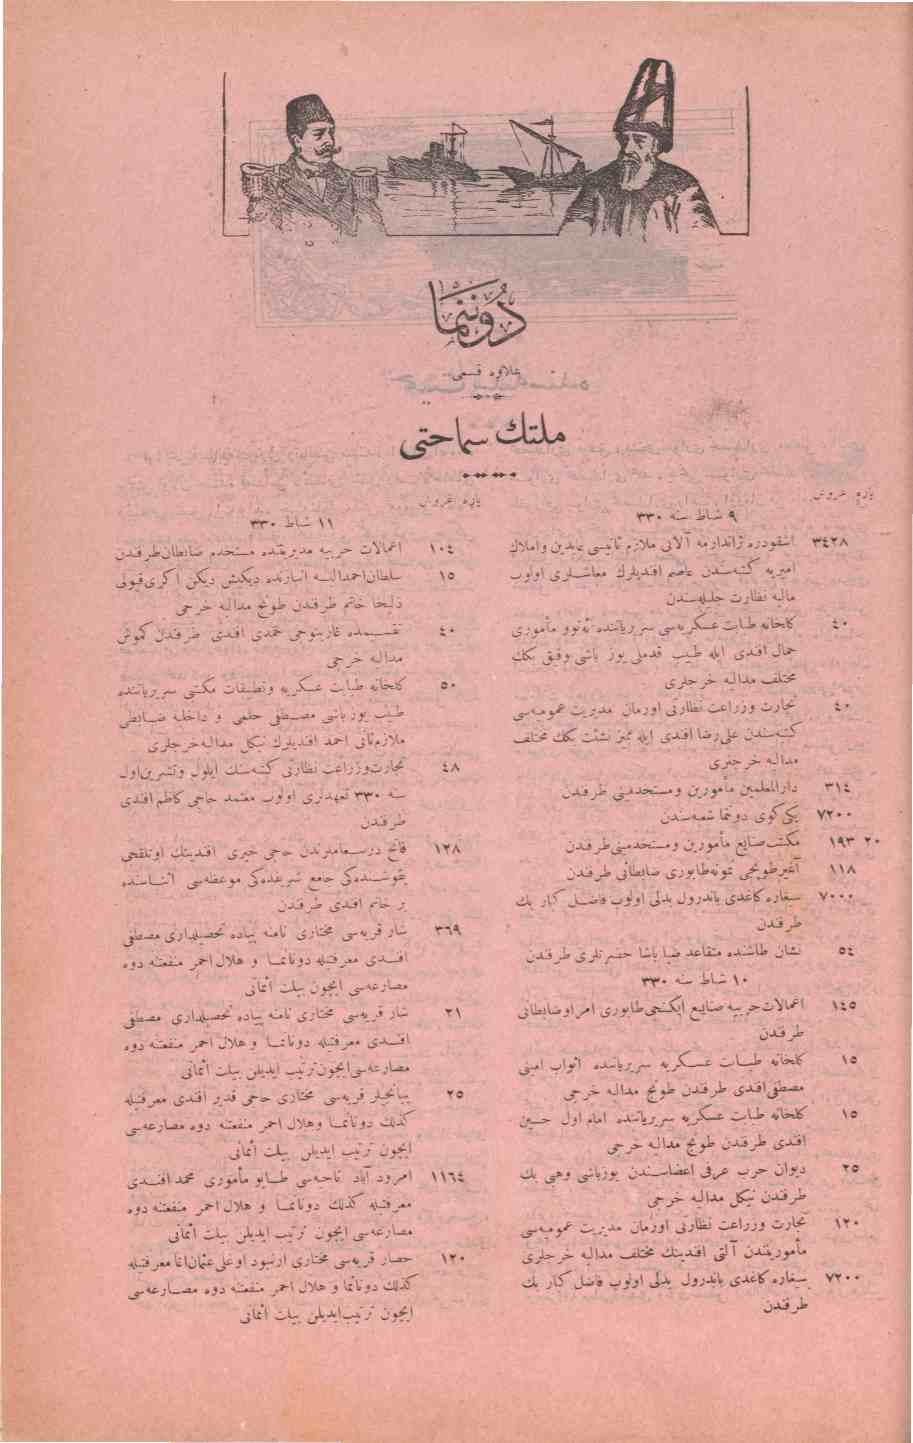 دوننما
علاوه قسمی
ملتك سماحتی
پاره غروش
٩ شباط سنه ٣٣٠
٣٤٢٨ اشقودره ژاندارمه آلایی ملازم ثانیسی عابدین واملاك
امیریه كتبه سندن عاصم افندیلرك معاشلری اولوب
مالیه نظارت جلیله سندن
٤٠ كلخانه طبابت عسكریه سی سریریاتنده نه نوو مأموری
جمال افندی ایله طبیب قدملی یوز باشی وفیق بكك
مختلف مدالیه خرجلری
٤٠ تجارت وزراعت نظارتی اورمان مدیریت عمومیه سی
كتبه سندن علی رضا افندی ایله ممیز نشئت بكك مختلف
مدالیه خرجلری
٣١٤ دارالمعلمین مأمورین ومستخدمینی طرفندن
٧٢٠٠ یكی كوی دوننما شعبه سندن
٢٠ ١٩٣ مكتب صنایع مأمورین ومستخدمینی طرفندن
١١٨ آغیر طوپجی نمونه طابوری ضابطانی طرفندن
٧٠٠٠ سیغاره كاغدی باندرول بدلی اولوب فاضل كبار بك
طرفندن
٥٤ نشان طاشنده متقاعد ضیا پاشا حضرتلری طرفندن
١٠ شباط سنه ٣٣٠
١٤٥ اعمالات حربیه صنایع ایكنجی طابوری امرا وضابطانی
طرفندن
١٥ كلخانه طبابت عسكریه سریریاتنده اثواب امینی
مصطفی افندی طرفندن طونج مدالیه خرجی
١٥ كلخانه طبابت عسكریه سریریاتنده امام اول حسین
افندی طرفندن طونج مدالیه خرجی
٢٥ دیوان حرب عرفی اعضاسندن یوزباشی وهبی بك
طرفندن نیكل مدالیه خرجی
١٢٠ تجارت وزراعت نظارتی اورمان مدیریت عمومیه سی
مأمورینندن آلتی افندینك مختلف مدالیه خرجلری
٧٢٠٠ سیغاره كاغدی باندرول بدلی اولوب فاضل كبار بك
طرفندن
پاره غروش
١١ شباط ٣٣٠
١٠٤ اعمالات حربیه مدیریتنده مستخدم ضابطان طرفندن
١٥ سلطان احمدده البسه انبارنده دیكیش دیكن اكری قپولی
زلیخا خانم طرفندن طونج مدالیه خرجی
٤٠ تقسیمده غازینوجی حمدی افندی طرفندن كموش
مدالیه خرجی
٥٠ كلخانه طبابت عسكریه وتطبیقات مكتبی سریریاتنده
طبیب یوزباشی مصطفی حلمی و داخلیه ضابطی
ملازم ثانی احمد افندیلرك نیكل مدالیه خرجلری
٤٨ تجارت وزراعت نظارتی كتبه سنك ایلول وتشرین اول
سنه ٣٣٠ تعهدلری اولوب معتمد حاجی كاظم افندی
طرفندن
١٢٨ فاتح درسعاملرندن حاجی خیری افندینك اونقپانی
یوقوشنده كی جامع شریفده كی موعظه سی اثناسنده
بر خانم افندی طرفندن
٣٦٩ شار قریه سی مختاری نامنه پیاده تحصیلداری مصطفی
افندی معرفتیله دوناتما و هلال احمر منفعتنه دوه
مصارعه سی ایچون بیلت اثمانی
٢١ شار قریه سی مختاری نامنه پیاده تحصیلداری مصطفی
افندی معرفتیله دوناتما و هلال احمر منفعتنه دوه
مصارعه سی ایچون ترتیب ایدیلن بیلت اثمانی
٢٥ قریه سی مختاری حاجی قدیر افندی معرفتیله
كذلك دوناتما وهلال احمر منفعتنه دوه مصارعه سی
ایچون ترتیب ایدیلن بیلت اثمانی
١١٦٤ امرود آباد ناحیه سی طاپو مأموری محمد افندی
معرفتیله كذلك دوناتما و هلال احمر منفعتنه دوه
مصارعه سی ایچون ترتیب ایدیلن بیلت اثمانی
١٢٠ حصار قریه سی مختاری اوغلی عثمان اغا معرفتیله
كذلك دوناتما و هلال احمر منفعتنه دوه مصارعه سی
ایچون ترتیب ایدیلن بیلت اثمانی